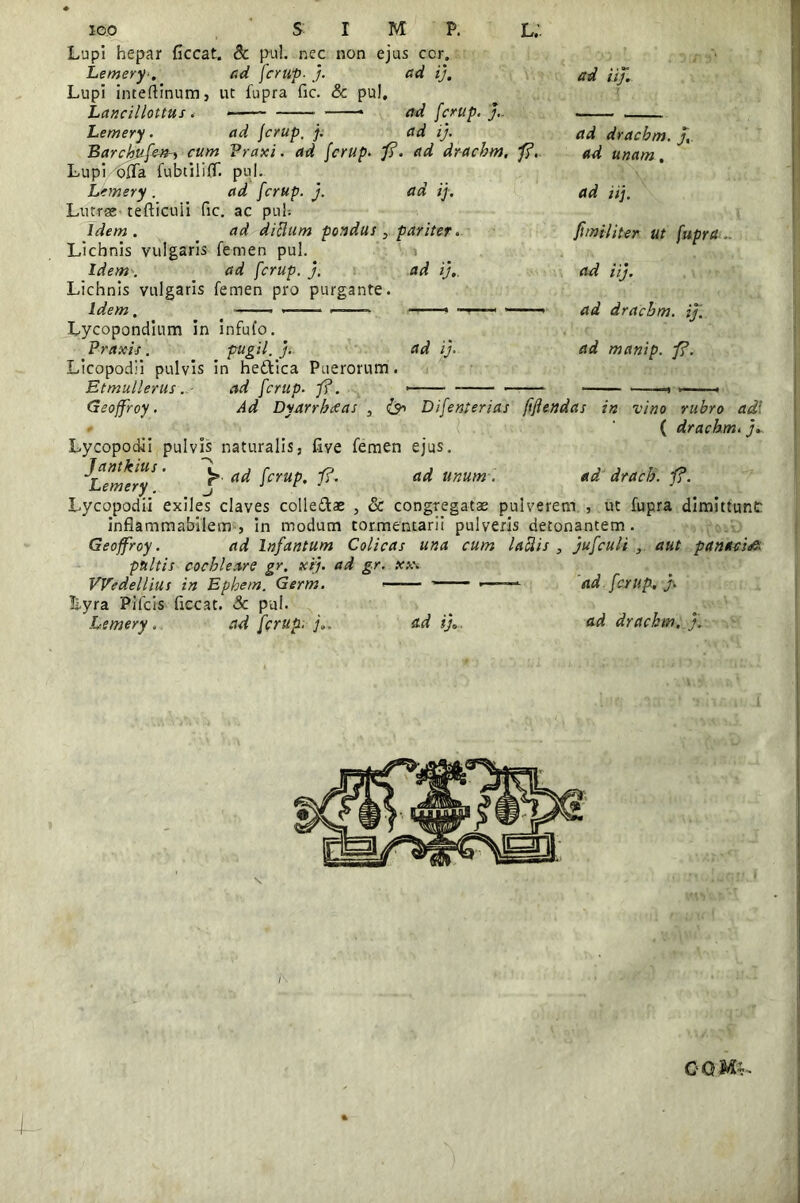 100 S I M P. L.
Lupi hepar ſiccat. & pul. nec non ejus cor.
Lemery. ad ſcrup. j. ad ij. ad iij.
Lupi inteſtinum, ut ſupra ſic. & pul.
Lancillottus. —— —— —— ad ſcrup. j. —— ——
Lemery. ad ſcrup. j. ad ij. ad drachm. j.
Barchuſen, cum Praxi. ad ſcrup. ſſ. ad drachm. ſſ. ad unam.
Lupi oſſa ſubtiliſſ. pul.
Lemery. ad ſcrup. j. ad ij. ad iij.
Lutræ teſticuli ſic. ac pul.
Idem. ad dictum pondus, pariter. ſimiliter ut ſupra.
Lichnis vulgaris ſemen pul.
Idem. ad ſcrup. j. ad ij. ad iij.
Lichnis vulgaris ſemen pro purgante.
Idem. —— —— —— —— —— —— ad drachm. ij.
Lycopondium in infuſo.
Praxis. pugil. j. ad ij. ad manip. ſſ.
Licopodii pulvis in hectica Puerorum.
Etmullerus. ad ſcrup. ſſ. —— —— —— —— —— ——
Geoffroy. Ad Dyarrhæas, & Diſenterias ſiſtendas in vino rubro ad
( drachm. j.
Lycopodii pulvis naturalis, ſive ſemen ejus.
Jantkius.
Lemery. } ad ſcrup. ſſ. ad unum. ad drach. ſſ.
Lycopodii exiles claves collectæ, & congregatæ pulverem, ut ſupra dimittunt
inflammabilem, in modum tormentarii pulveris detonantem.
Geoffroy. ad Infantum Colicas una cum lactis, juſculi, aut panaciæ
pultis cochleare gr. xij. ad gr. xx.
VVedellius in Ephem. Germ. —— —— —— ad ſcrup. j.
Lyra Piſcis ſiccat. & pul.
Lemery. ad ſcrup. j. ad ij. ad drachm. j.
COM-